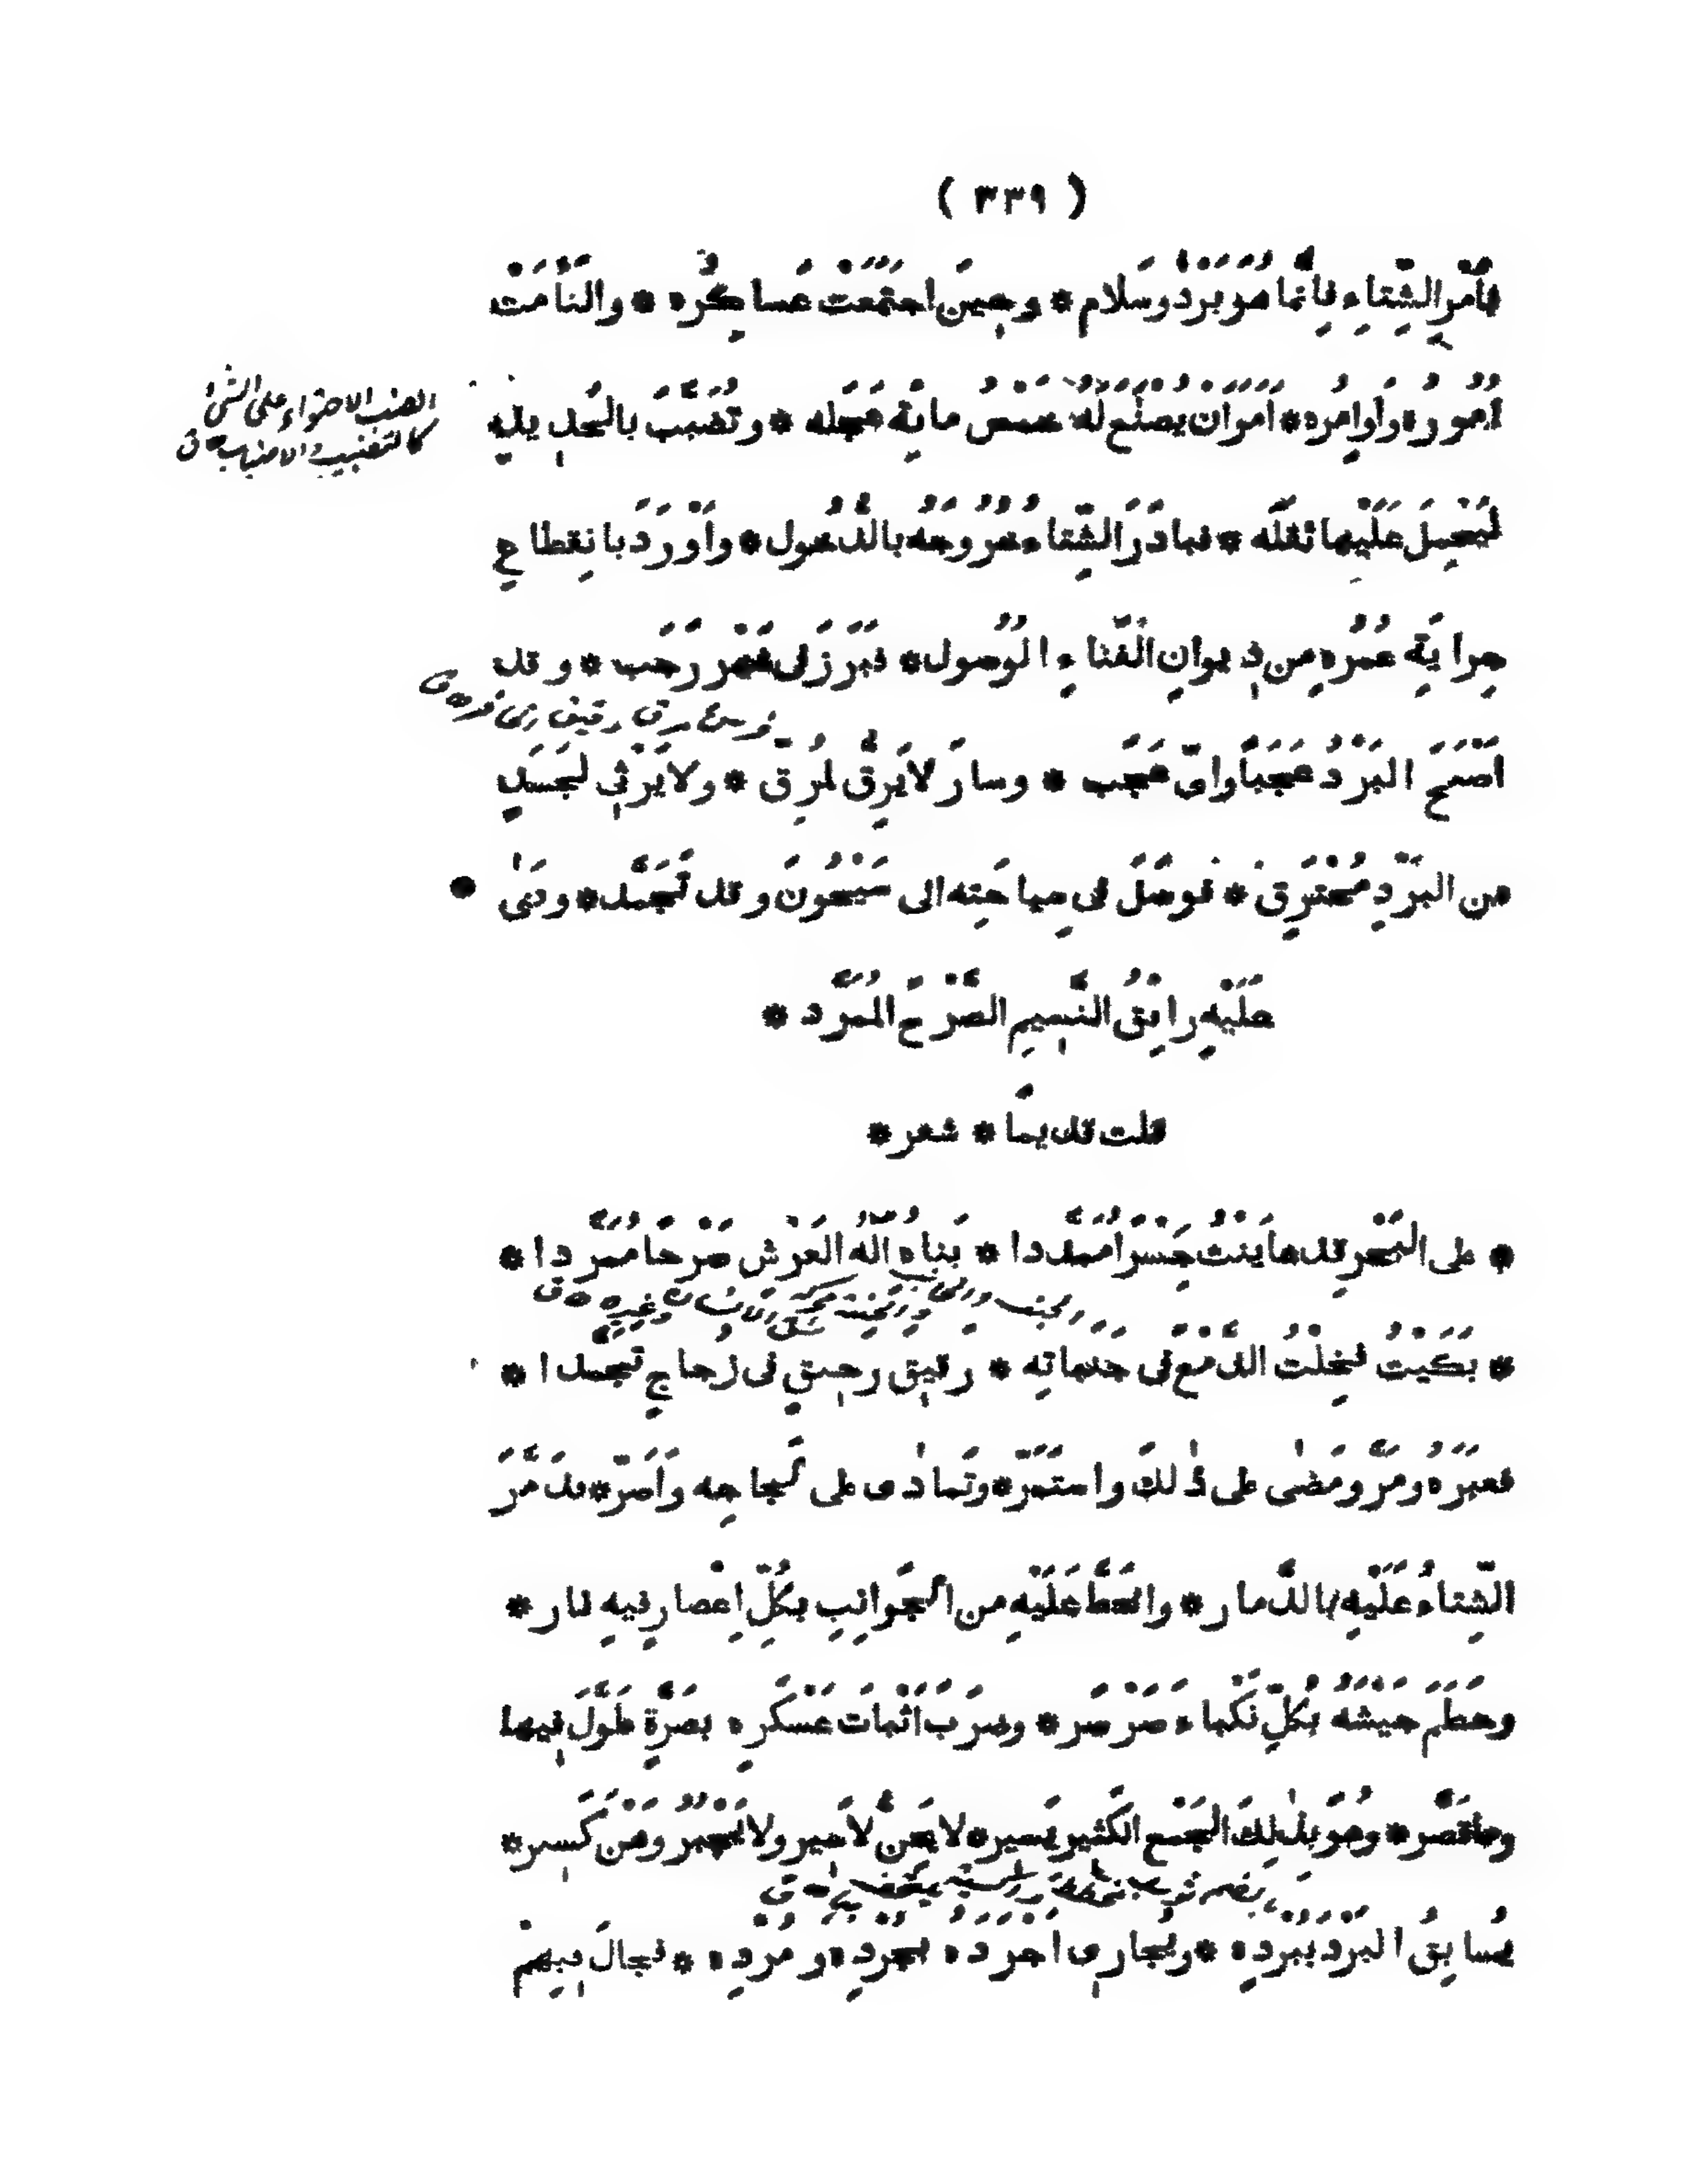 ( ٣٣٩ )
بأمر الشِّتاءِ فإنَّما هو بَرْدٌ وسَلام * وحِينَ اجتَمَعَت عَساكِرُه * والتَأَمَت
اُمورُه وأوامِرُه * اَمَر اَن يُصْنَع لَهُ خمسُ مائة عَجَله * وتُضَبَّبَ بالحَدِيد
الضب الاحتواء على الشئ
كالتضبيب والاضباب ق
لِيَحْمِلَ عَلَيْها ثَقَلَه * فبادَرَ الشِّتاء خُرُوجَهُ بالدُّخول * وأَوْرَدَ بانقِطاعِ
جِرايَةِ عُمُرِه مِن دِيوانِ الفَناءِ الوُصول * فبَرَزَ فى شَهْر رَجَب * وقد
اَصْبَحَ البَرْدُ عَجَبًا واىّ عَجَب * وسارَ لا يَرِقُّ لمُرِقّ * ولا يَرْثِى لجَسَدٍ
من البَرْدِ مُحْتَرِق * فوَصَلَ فى سِياحَتِه الى سَيْحُونَ وقد تَجَمَّد * وبَنى
عَلَيْهِ رايِقُ النَّسِيمِ الصَّرْحَ المُمَرَّد *
قلت قديمًا * شعر *
* على البَحْرِ قد عايَنْتُ جِسْرًا مُمَدَّدا * بَناهُ اله العَرْش صَرْحًا مُمَرَّدا *
* بَكَيْتُ فخِلْتُ الدمعَ فى جَنَباتِه * رقيق رحيقٍ فى زُجاجٍ تجمدا *
فعبَرَهُ ومَرّ ومَضٰى على ذٰلكَ واستَمَرّ * وتَمادٰى على لَجاجِه وأَصَرّ * فدَمَّرَ
الشِّتاءُ عَلَيْهِ بالدَّمار * وانحَطَّ عَلَيْهِ من الجَوانِبِ بكُلِّ اِعْصارٍ فيه نار *
وحَطَمَ جَيْشَهُ بكُلِّ نَكْباءَ صَرْصَر * وضرَبَ اَثْباتَ عَسْكَرِه بصَرَّةٍ طَوَّلَ فيها
وما قصَّر * وهُوَ بذٰلكَ الجَمْع الكَثيرِ يَسير * لا يَحِنُّ لأَسير ولا يَجْبُرُ وَهْنَ كَسير *
يُسابِقُ البَرْدَ ببَرْدِه * ويُجارِى اَجْرَدَه بجُرْدِه ومُرْدِه * فجالَ فيهِمْ